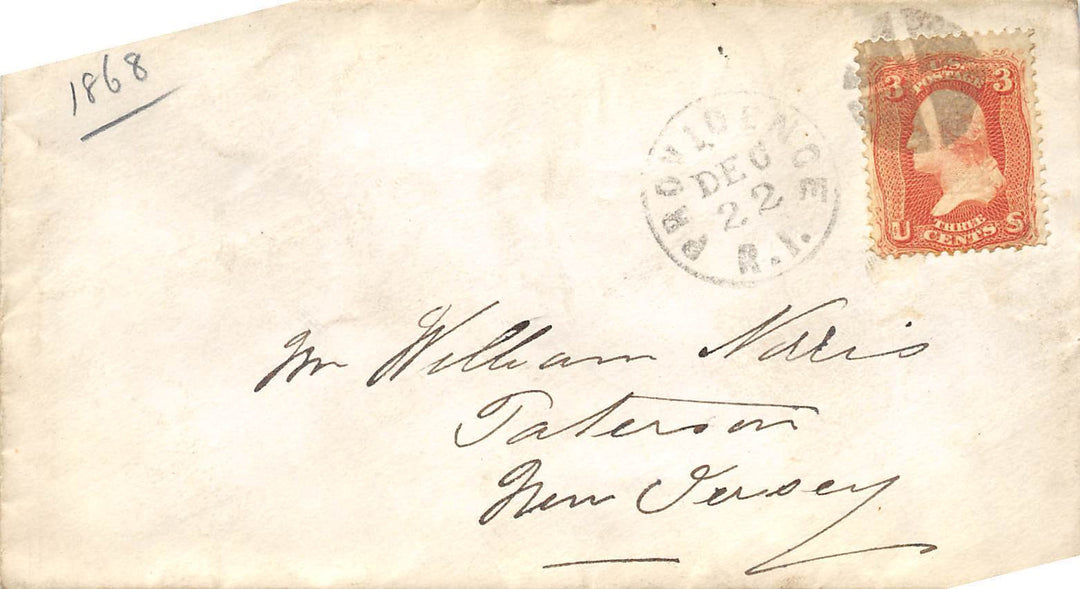 1868
PROVIDENCE
DEC
22
R.I.
U.S.
POSTAGE
3 3
U THREE S
CENTS
Mr William
Paterson
New Jersey